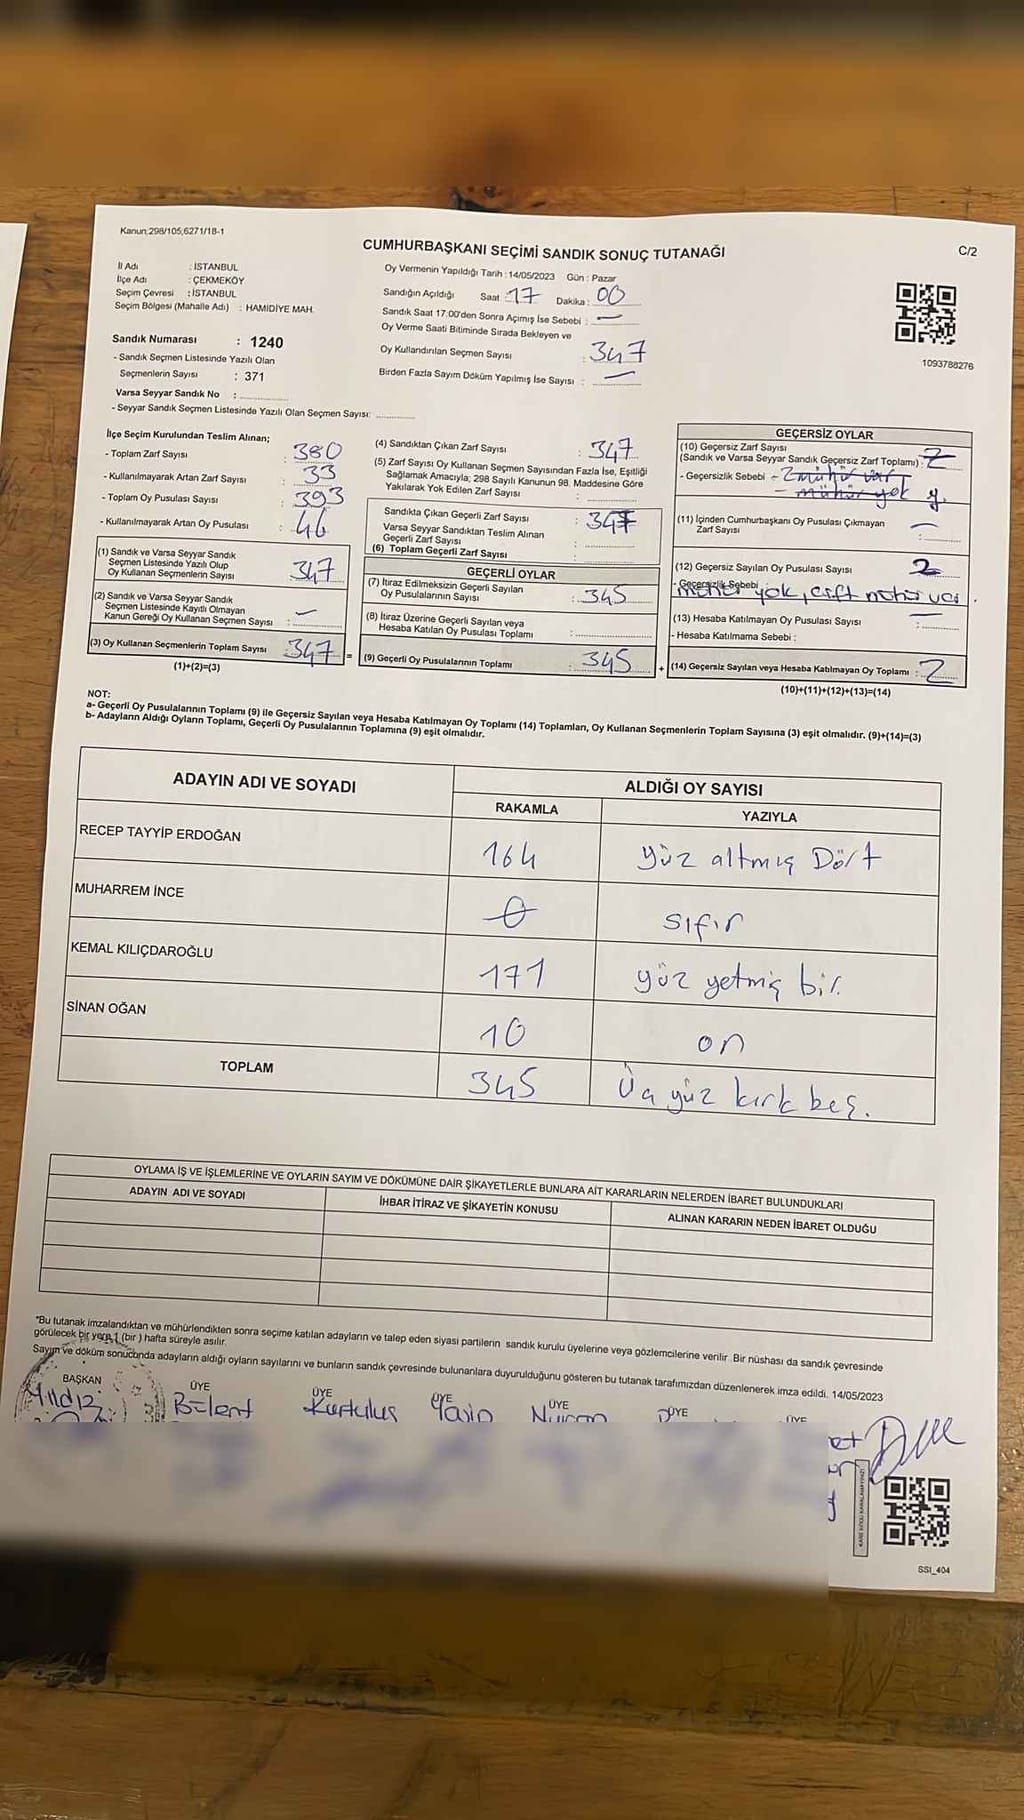 Kanun;298/105;6271/18-1
CUMHURBAŞKANI SEÇİMİ SANDIK SONUÇ TUTANAĞI
C/2
İl Adı : İSTANBUL
İlçe Adı : ÇEKMEKÖY
Seçim Çevresi : İSTANBUL
Seçim Bölgesi (Mahalle Adı) : HAMİDİYE MAH.
Sandık Numarası : 1240
- Sandık Seçmen Listesinde Yazılı Olan
Seçmenlerin Sayısı : 371
Varsa Seyyar Sandık No :
- Seyyar Sandık Seçmen Listesinde Yazılı Olan Seçmen Sayısı:
Oy Vermenin Yapıldığı Tarih : 14/05/2023 Gün : Pazar
Sandığın Açıldığı Saat : 17 Dakika : 00
Sandık Saat 17:00'den Sonra Açımış İse Sebebi : —
Oy Verme Saati Bitiminde Sırada Bekleyen ve
Oy Kullandırılan Seçmen Sayısı : 347
Birden Fazla Sayım Döküm Yapılmış İse Sayısı : —
1093788276
İlçe Seçim Kurulundan Teslim Alınan;
- Toplam Zarf Sayısı : 380
- Kullanılmayarak Artan Zarf Sayısı : 33
- Toplam Oy Pusulası Sayısı : 393
- Kullanılmayarak Artan Oy Pusulası : 46
(1) Sandık ve Varsa Seyyar Sandık
Seçmen Listesinde Yazılı Olup
Oy Kullanan Seçmenlerin Sayısı : 347
(2) Sandık ve Varsa Seyyar Sandık
Seçmen Listesinde Kayıtlı Olmayan
Kanun Gereği Oy Kullanan Seçmen Sayısı : —
(3) Oy Kullanan Seçmenlerin Toplam Sayısı : 347 =
(1)+(2)=(3)
(4) Sandıktan Çıkan Zarf Sayısı : 347
(5) Zarf Sayısı Oy Kullanan Seçmen Sayısından Fazla İse, Eşitliği
Sağlamak Amacıyla; 298 Sayılı Kanunun 98. Maddesine Göre
Yakılarak Yok Edilen Zarf Sayısı :
Sandıkta Çıkan Geçerli Zarf Sayısı : 347
Varsa Seyyar Sandıktan Teslim Alınan
Geçerli Zarf Sayısı :
(6) Toplam Geçerli Zarf Sayısı :
GEÇERLİ OYLAR
(7) İtiraz Edilmeksizin Geçerli Sayılan
Oy Pusulalarının Sayısı : 345
(8) İtiraz Üzerine Geçerli Sayılan veya
Hesaba Katılan Oy Pusulası Toplamı :
(9) Geçerli Oy Pusulalarının Toplamı : 345 +
GEÇERSİZ OYLAR
(10) Geçersiz Zarf Sayısı
(Sandık ve Varsa Seyyar Sandık Geçersiz Zarf Toplamı) : 2
- Geçersizlik Sebebi - 2 mühür var
- mühür yok
(11) İçinden Cumhurbaşkanı Oy Pusulası Çıkmayan
Zarf Sayısı : —
(12) Geçersiz Sayılan Oy Pusulası Sayısı : 2
- Geçersizlik Sebebi
mühür yok, çift mühür var
(13) Hesaba Katılmayan Oy Pusulası Sayısı : —
- Hesaba Katılmama Sebebi :
(14) Geçersiz Sayılan veya Hesaba Katılmayan Oy Toplamı : 2
(10)+(11)+(12)+(13)=(14)
NOT:
a- Geçerli Oy Pusulalarının Toplamı (9) ile Geçersiz Sayılan veya Hesaba Katılmayan Oy Toplamı (14) Toplamları, Oy Kullanan Seçmenlerin Toplam Sayısına (3) eşit olmalıdır. (9)+(14)=(3)
b- Adayların Aldığı Oyların Toplamı, Geçerli Oy Pusulalarının Toplamına (9) eşit olmalıdır.
ADAYIN ADI VE SOYADI
ALDIĞI OY SAYISI
RAKAMLA YAZIYLA
RECEP TAYYİP ERDOĞAN 164 yüz altmış Dört
MUHARREM İNCE 0 sıfır
KEMAL KILIÇDAROĞLU 171 yüz yetmiş bir.
SİNAN OĞAN 10 on
TOPLAM 345 Üç yüz kırk beş.
OYLAMA İŞ VE İŞLEMLERİNE VE OYLARIN SAYIM VE DÖKÜMÜNE DAİR ŞİKAYETLERLE BUNLARA AİT KARARLARIN NELERDEN İBARET BULUNDUKLARI
ADAYIN ADI VE SOYADI İHBAR İTİRAZ VE ŞİKAYETİN KONUSU ALINAN KARARIN NEDEN İBARET OLDUĞU
*Bu tutanak imzalandıktan ve mühürlendikten sonra seçime katılan adayların ve talep eden siyasi partilerin sandık kurulu üyelerine veya gözlemcilerine verilir. Bir nüshası da sandık çevresinde
görülecek bir yere 1 (bir ) hafta süreyle asılır.
Sayım ve döküm sonucunda adayların aldığı oyların sayılarını ve bunların sandık çevresinde bulunanlara duyurulduğunu gösteren bu tutanak tarafımızdan düzenlenerek imza edildi. 14/05/2023
BAŞKAN ÜYE ÜYE ÜYE ÜYE ÜYE ÜYE
Yıldız Bülent Kurtuluş Yasin
SSI_404